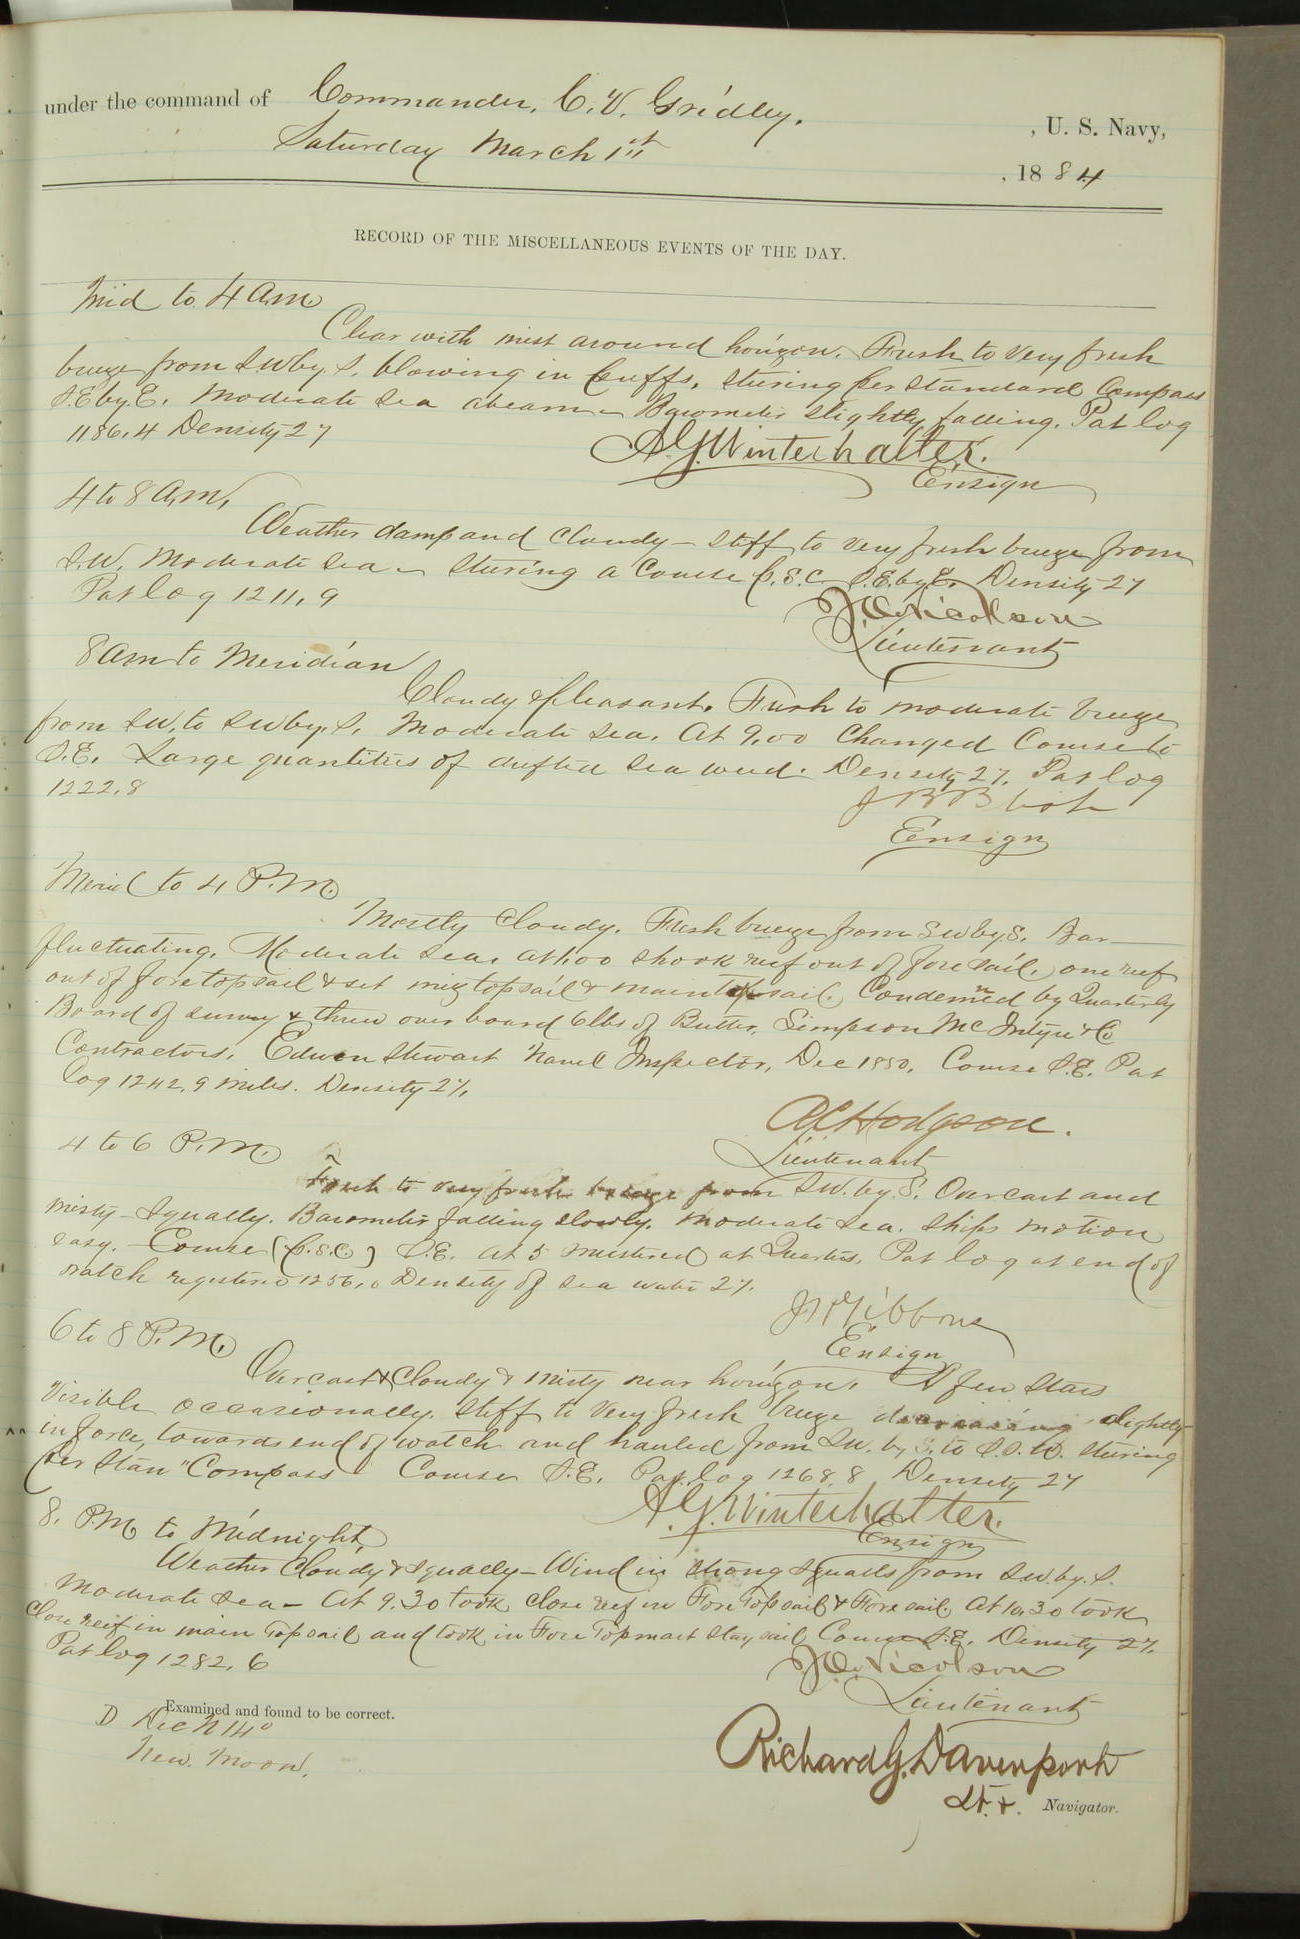 under the command of Commander, C. V. Gridley. , U. S. Navy,
Saturday March 1st , 1884
RECORD OF THE MISCELLANEOUS EVENTS OF THE DAY.
Mid to 4 A.m.
Clear with mist around horizon. Fresh to very fresh
breeze from S.W by S. blowing in puffs. Steering per standard Compass
S.E by E. Moderate sea abeam – Barometer slightly falling. Pat log
1186.4 Density 27
A.G. Winterhalter.
Ensign
4 to 8 A.m.
Weather damp and cloudy – stiff to very fresh breeze from
S.W. Moderate sea – Steering a Course p.s.c. S.E. by E. Density 27
Pat log 1211.9
Nicolson
Lieutenant
8 am to Meridian
Cloudy & pleasant. Fresh to moderate breeze
from SW. to SW by S. Moderate sea. At 9.00 Changed Course to
S.E. Large quantities of drifted sea weed. Density 27. Pat log
1222.8
J B Blish
Ensign
Merid to 4 P.M.
Mostly Cloudy. Fresh breeze from SW by S. Bar
fluctuating. Moderate sea. At 1.00 shook reef out of fore sail, one reef
out of fore topsail & set miz topsail & main topsail. Condemned by Quarterly
Board of survey & threw over board 6 lbs of Butter, Simpson McIntyre & Co
Contractors, Edwin Stewart Naval Inspector, Dec 1880. Course S.E. Pat
log 1242.9 miles. Density 27.
A C Hodgson.
Lieutenant
4 to 6 P.M.
Fresh to very fresh breeze from SW. by S. Overcast and
misty – Squally. Barometer falling slowly. Moderate sea. Ships motion
easy. – Course (p.s.c) S.E. At 5 mustered at Quarters. Pat log at end of
watch registered 1256.0 Density of sea water 27.
J H Gibbons
Ensign
6 to 8 P.M.
Overcast & Cloudy & misty near horizon. A few Stars
visible occasionally. Stiff to very fresh breeze decreasing slightly
in force, towards end of watch and hauled from SW. by S. to S.S.W. Steering
per Stan" Compass Course S.E. Pat log 1268.8 Density 27
A.G. Winterhalter.
Ensign
8. P.M. to Midnight
Weather Cloudy & Squally – Wind in strong squalls from SW. by. S.
Moderate Sea – At 9.30 took close reef in Fore Topsail & Fore sail. At 10.30 took
close reef in main Topsail and took in Fore Topmast Stay sail Course S.E. Density 27.
Pat log 1282.6
Nicolson
Lieutenant
Examined and found to be correct.
D Dec N 14°
New. Moon.
Richard G. Davenport
Lt. Navigator.